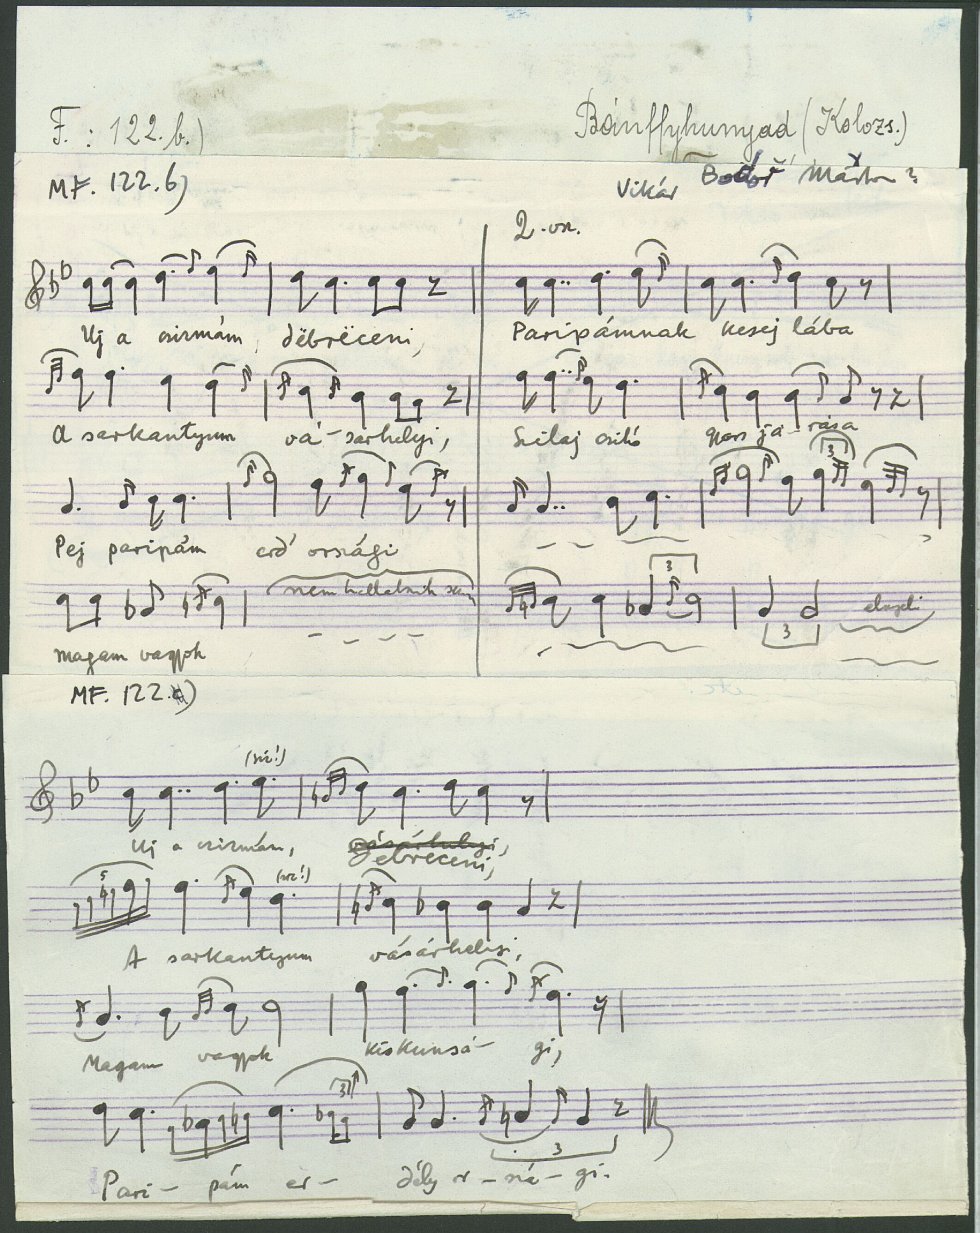 F.: 122.b.) Bánffyhunyad (Kolozs.)
MF. 122.b) Vikár Márton ?
2. vsz.
Uj a csizmám, dëbrëceni,
Paripámnak kesej lába
A sarkantyum vá-sárhelyi,
Szilaj csikó já-rása
Pej paripám erd' országi
nem hallatszik
Magam vagyok
MF. 122.c)
(sic!)
Uj a csizmám, vásárhelyi,
Debreceni,
5 (sic!)
A sarkantyum vásárhelyi,
Magam vagyok kiskunsá-gi,
3
Pari-pám er-dély or-szá-gi.
3